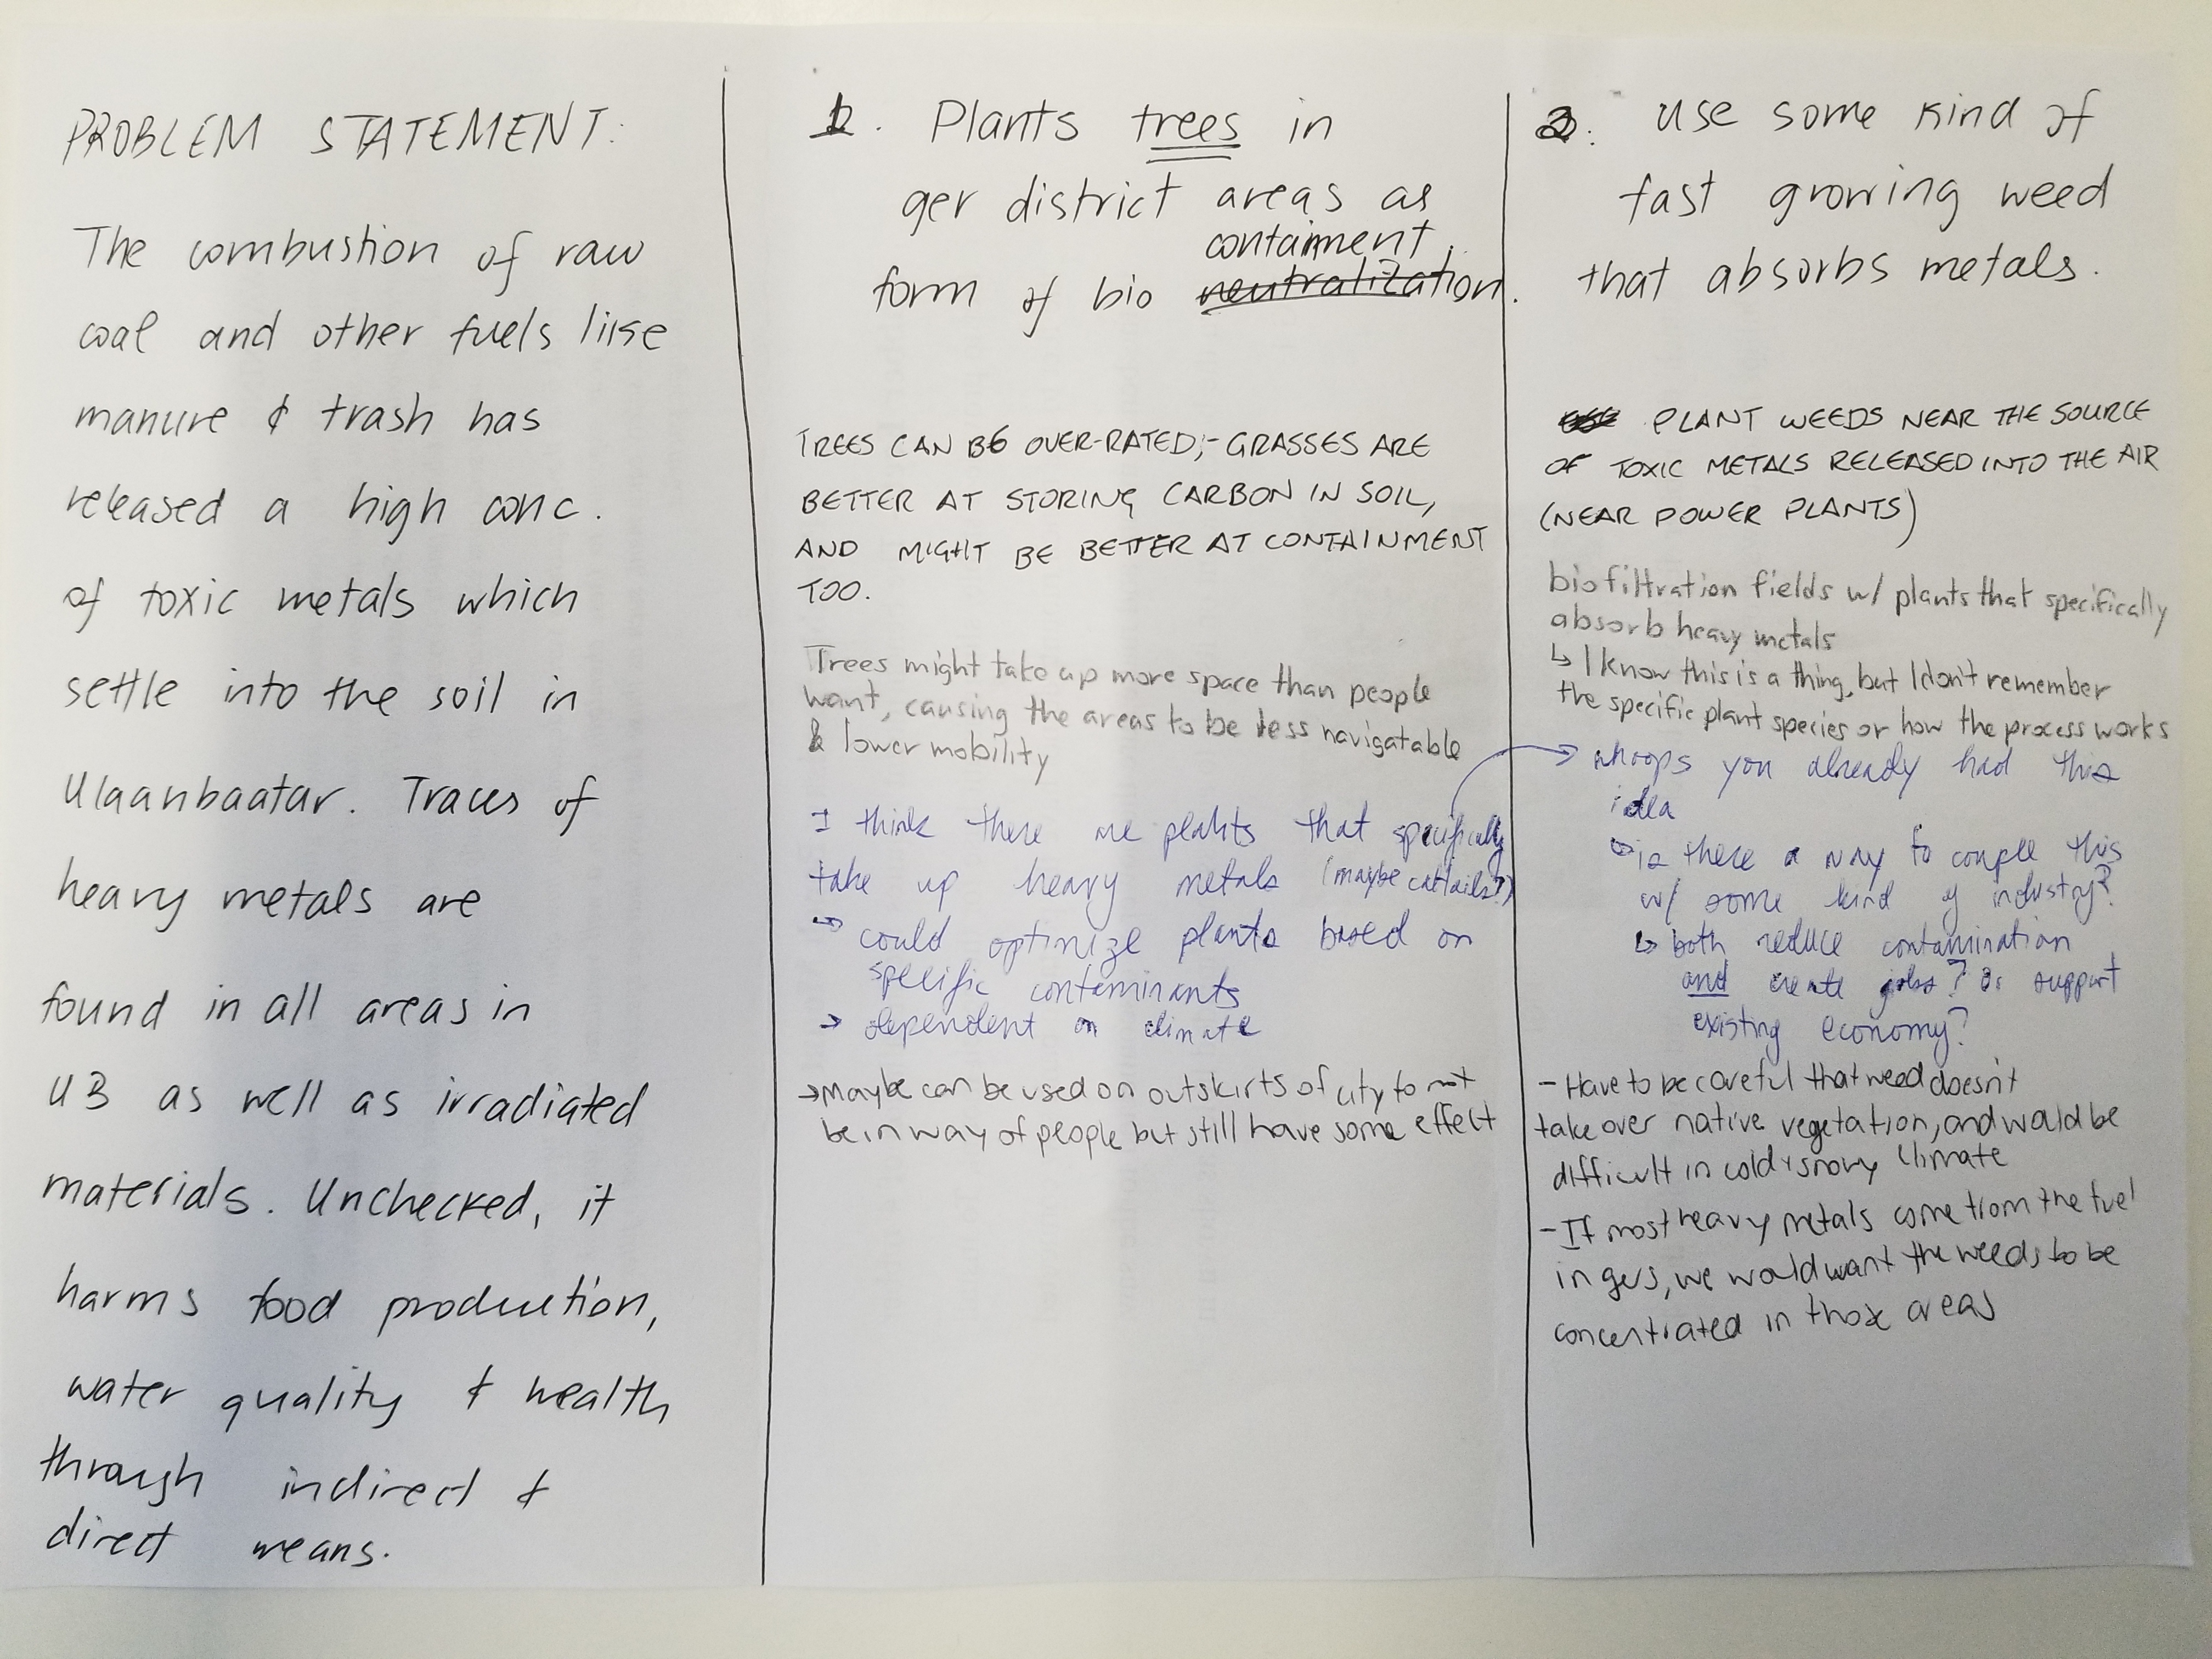 PROBLEM STATEMENT:
The combustion of raw
coal and other fuels like
manure & trash has
released a high conc.
of toxic metals which
settle into the soil in
Ulaanbaatar. Traces of
heavy metals are
found in all areas in
UB as well as irradiated
materials. Unchecked, it
harms food production,
water quality & health
through indirect &
direct means.
1. Plants trees in
ger district areas as
containment
form of bio neutralization.
TREES CAN BE OVER-RATED;- GRASSES ARE
BETTER AT STORING CARBON IN SOIL,
AND MIGHT BE BETTER AT CONTAINMENT
TOO.
Trees might take up more space than people
want, causing the areas to be less navigatable
& lower mobility
I think there are plants that specifically
take up heavy metals (maybe cattails?)
↳ could optimize plants based on
specific contaminants
→ dependent on climate
→ Maybe can be used on outskirts of city to not
be in way of people but still have some effect
2. Use some kind of
fast growing weed
that absorbs metals.
PLANT WEEDS NEAR THE SOURCE
OF TOXIC METALS RELEASED INTO THE AIR
(NEAR POWER PLANTS)
biofiltration fields w/ plants that specifically
absorb heavy metals
↳ I know this is a thing, but I don't remember
the specific plant species or how the process works
→ whoops you already had this
idea
↳ is there a way to couple this
w/ some kind of industry?
↳ both reduce contamination
and create jobs? Or support
existing economy?
- Have to be careful that weed doesn't
take over native vegetation, and would be
difficult in cold & snowy climate
- If most heavy metals come from the fuel
in gers, we would want the weeds to be
concentrated in those areas